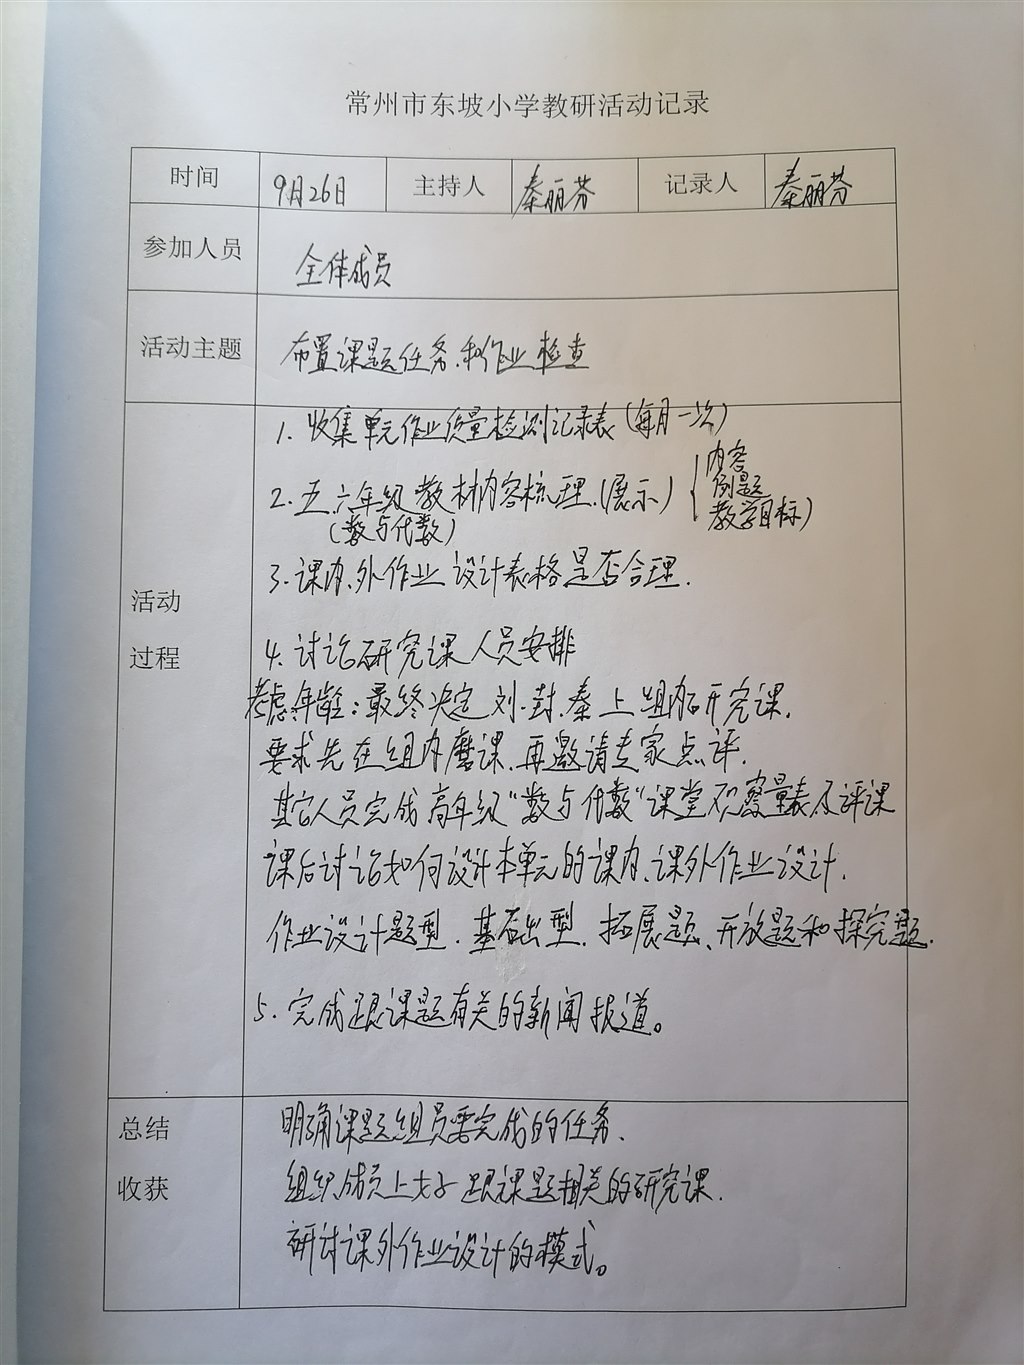 常州市东坡小学教研活动记录
时间 9月26日 主持人 秦丽芬 记录人 秦丽芬
参加人员 全体成员
活动主题 布置课题任务、和作业检查
活动
过程
1. 收集单元作业质量检测记录表(每月一次)
2. 五、六年级教材内容梳理.(展示)
(数与代数)
内容
例题
教学目标)
3. 课内、外作业设计表格是否合理.
4. 讨论研究课人员安排
考虑年龄:最终决定刘、封、秦上组内研究课.
要求先在组内磨课.再邀请专家点评.
其它人员完成高年级"数与代数"课堂观察量表及评课
课后讨论如何设计本单元的课内、课外作业设计.
作业设计题型.基础型.拓展题、开放题和探究题.
5. 完成跟课题有关的新闻报道。
总结
收获
明确课题组员要完成的任务.
组织成员上好跟课题相关的研究课.
研讨课外作业设计的模式。